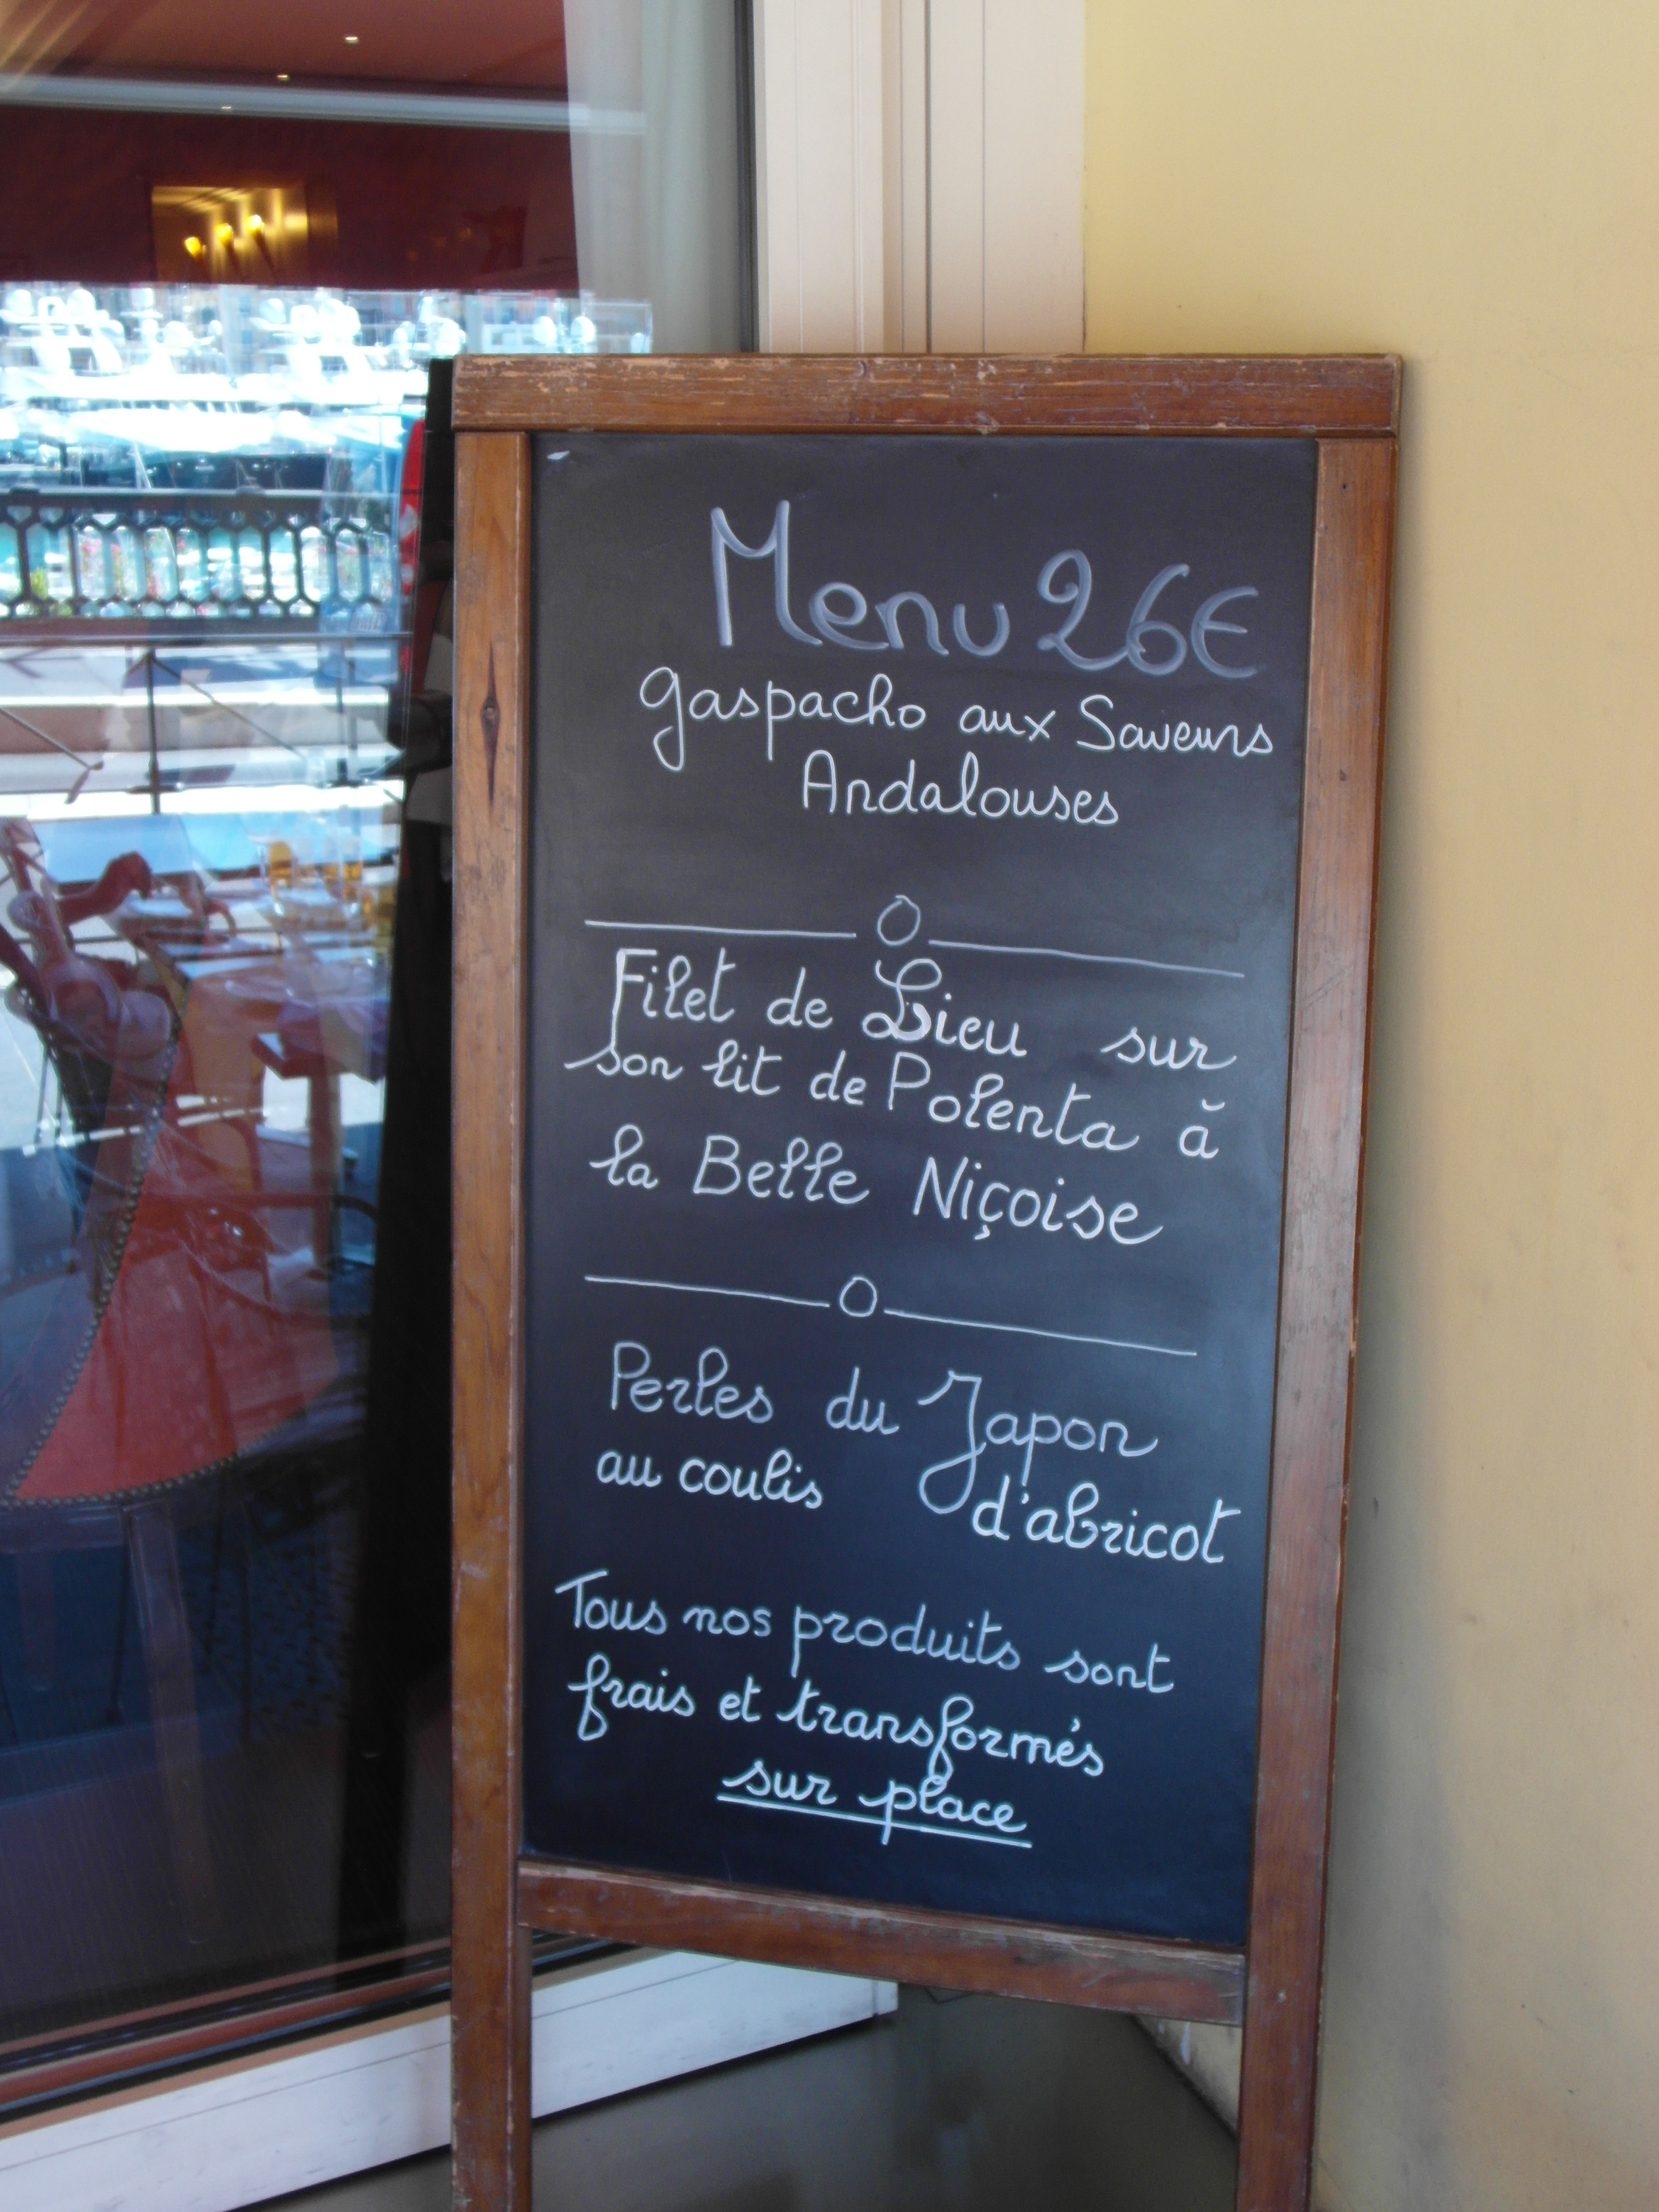 Menu 26€
gaspacho aux Saveurs
Andalouses
Filet de Lieu sur
son lit de Polenta à
la Belle Niçoise
Perles du Japon
au coulis d'abricot
Tous nos produits sont
frais et transformés
sur place